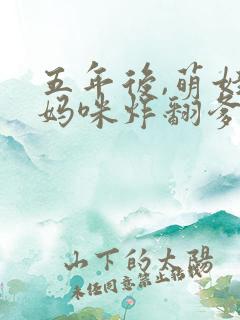 五年後,萌娃
妈咪炸翻爹
山下的太陽
未经同意禁止转载